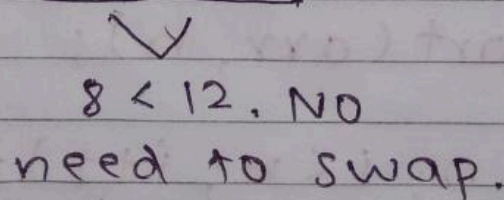 8 < 12. NO
need to swap.